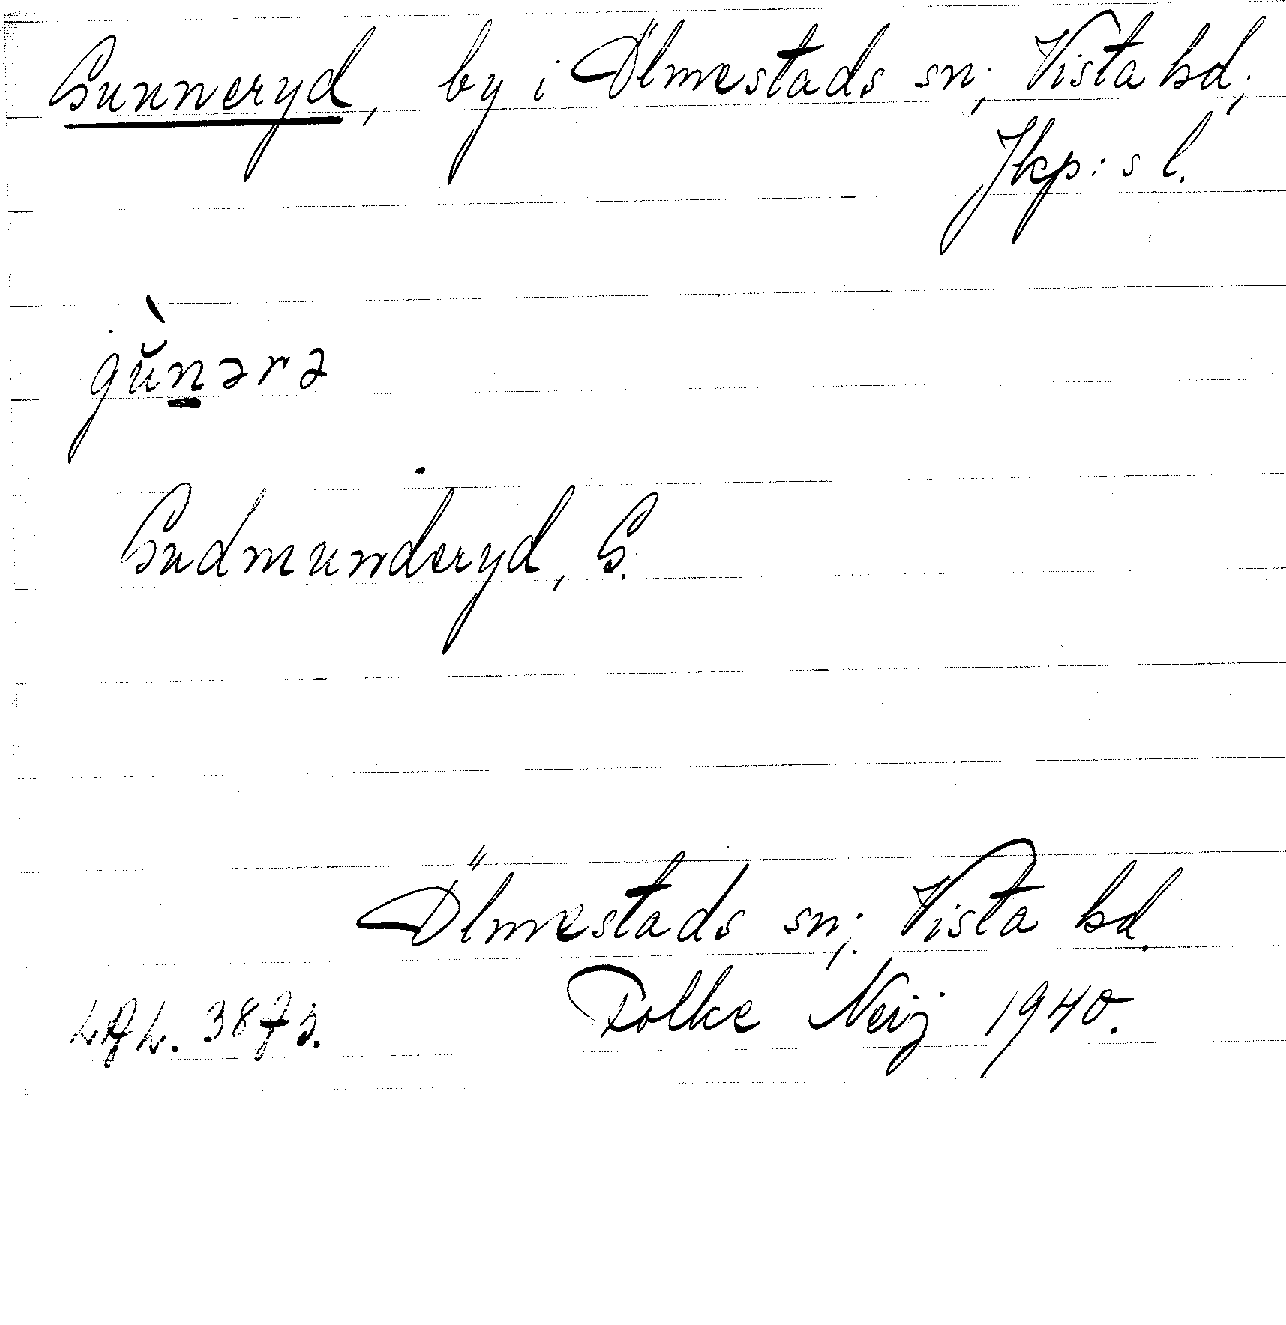 Gunneryd, by i Ölmestads sn; Vista hd;
Jkp:s l.
gŭ̀n̲ərə
Gudmunderyd, G.
Ölmestads sn; Vista hd.
Folke Neij 1940.